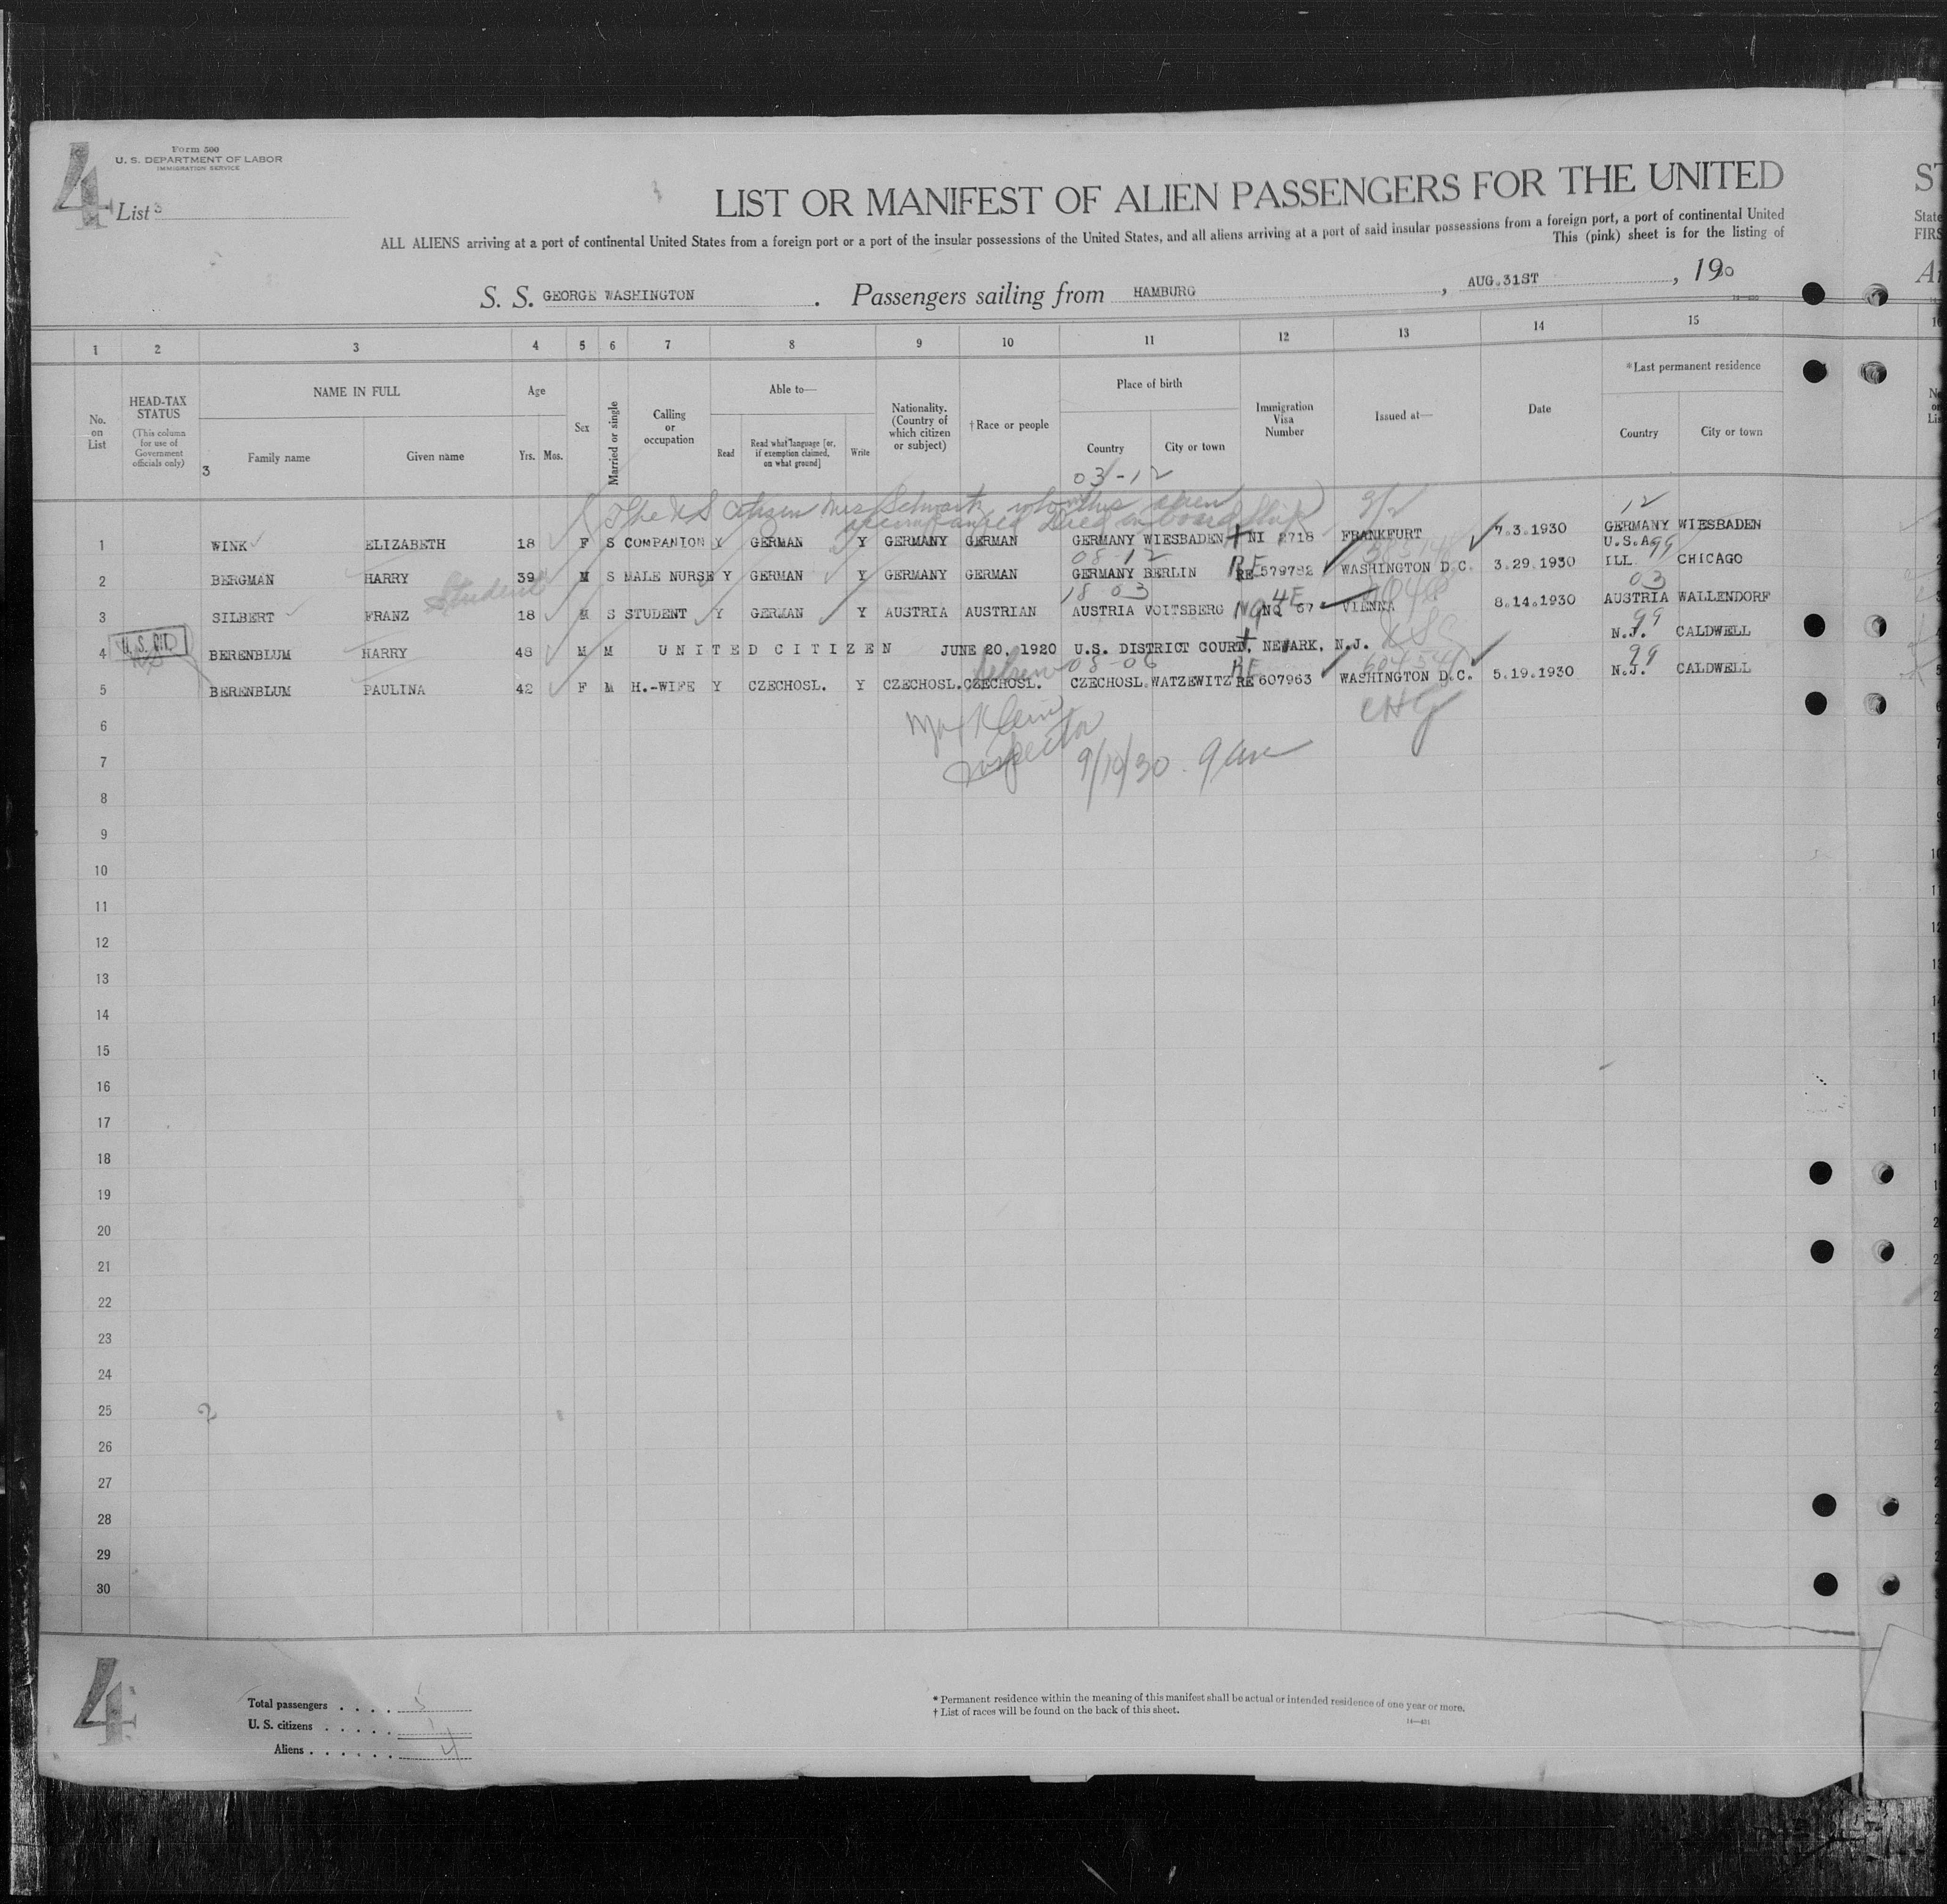 4
Form 500
U. S. DEPARTMENT OF LABOR
IMMIGRATION SERVICE
List 3
LIST OR MANIFEST OF ALIEN PASSENGERS FOR THE UNITED
ST
ALL ALIENS arriving at a port of continental United States from a foreign port or a port of the insular possessions of the United States, and all aliens arriving at a port of said insular possessions from a foreign port, a port of continental United
State
This (pink) sheet is for the listing of
FIRS
S. S. GEORGE WASHINGTON . Passengers sailing from HAMBURG , AUG.31ST , 1930
1 2 3 4 5 6 7 8 9 10 11 12 13 14 15
No. on List
HEAD-TAX STATUS (This column for use of Government officials only)
NAME IN FULL
Family name
Given name
Age
Yrs. Mos.
Sex
Married or single
Calling or occupation
Able to—
Read
Read what language [or, if exemption claimed, on what ground]
Write
Nationality. (Country of which citizen or subject)
†Race or people
Place of birth
Country
City or town
Immigration Visa Number
Issued at—
Date
*Last permanent residence
Country
City or town
3
03-12
The U S Citizen Mrs Schwartz, whom this alien
accompanied died on board ship
12
1 WINK ELIZABETH 18 F S COMPANION Y GERMAN Y GERMANY GERMAN GERMANY WIESBADEN NI 2718 FRANKFURT 7.3.1930 GERMANY WIESBADEN
08-12
U.S.A. 99
2 BERGMAN HARRY 39 M S MALE NURSE Y GERMAN Y GERMANY GERMAN GERMANY BERLIN RE 579792 WASHINGTON D.C. 3.29.1930 ILL CHICAGO
Student
18 03
4E
03
3 SILBERT FRANZ 18 M S STUDENT Y GERMAN Y AUSTRIA AUSTRIAN AUSTRIA VOITSBERG NQ 67 VIENNA 8.14.1930 AUSTRIA WALLENDORF
U. S. CIT.
99
4 BERENBLUM HARRY 48 M M UNITED CITIZEN JUNE 20, 1920 U.S. DISTRICT COURT, NEWARK, N.J. N.J. CALDWELL
Hebrew
08-06
RE
99
5 BERENBLUM PAULINA 42 F M H.-WIFE Y CZECHOSL. Y CZECHOSL. CZECHOSL. CZECHOSL. WATZEWITZ RE 607963 WASHINGTON D.C. 5.19.1930 N.J. CALDWELL
6
Max Klein
Inspector
9/10/30
7
8
9
10
11
12
13
14
15
16
17
18
19
20
21
22
23
24
25
26
27
28
29
30
4
Total passengers . . . . 5
U. S. citizens . . . . . 1
Aliens . . . . . . 4
* Permanent residence within the meaning of this manifest shall be actual or intended residence of one year or more.
† List of races will be found on the back of this sheet.